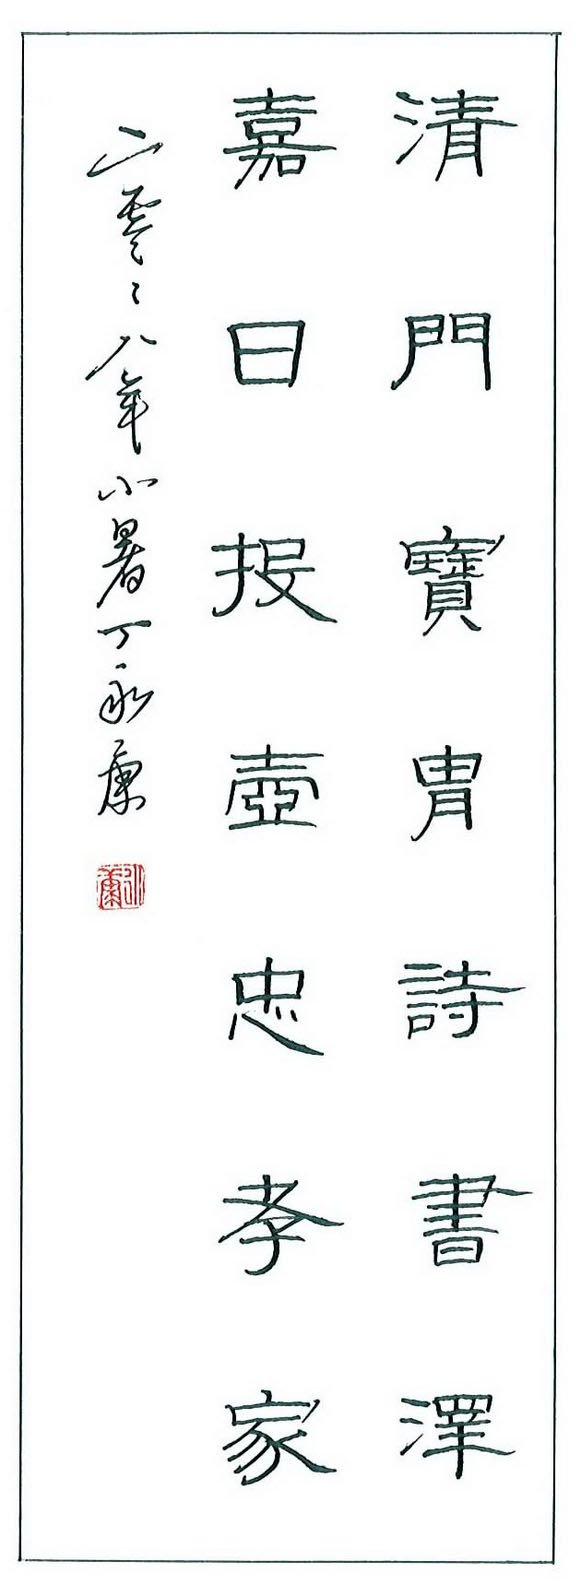 清門寶胄詩書澤
嘉日投壺忠孝家
二零々八年小暑丁永康
永康